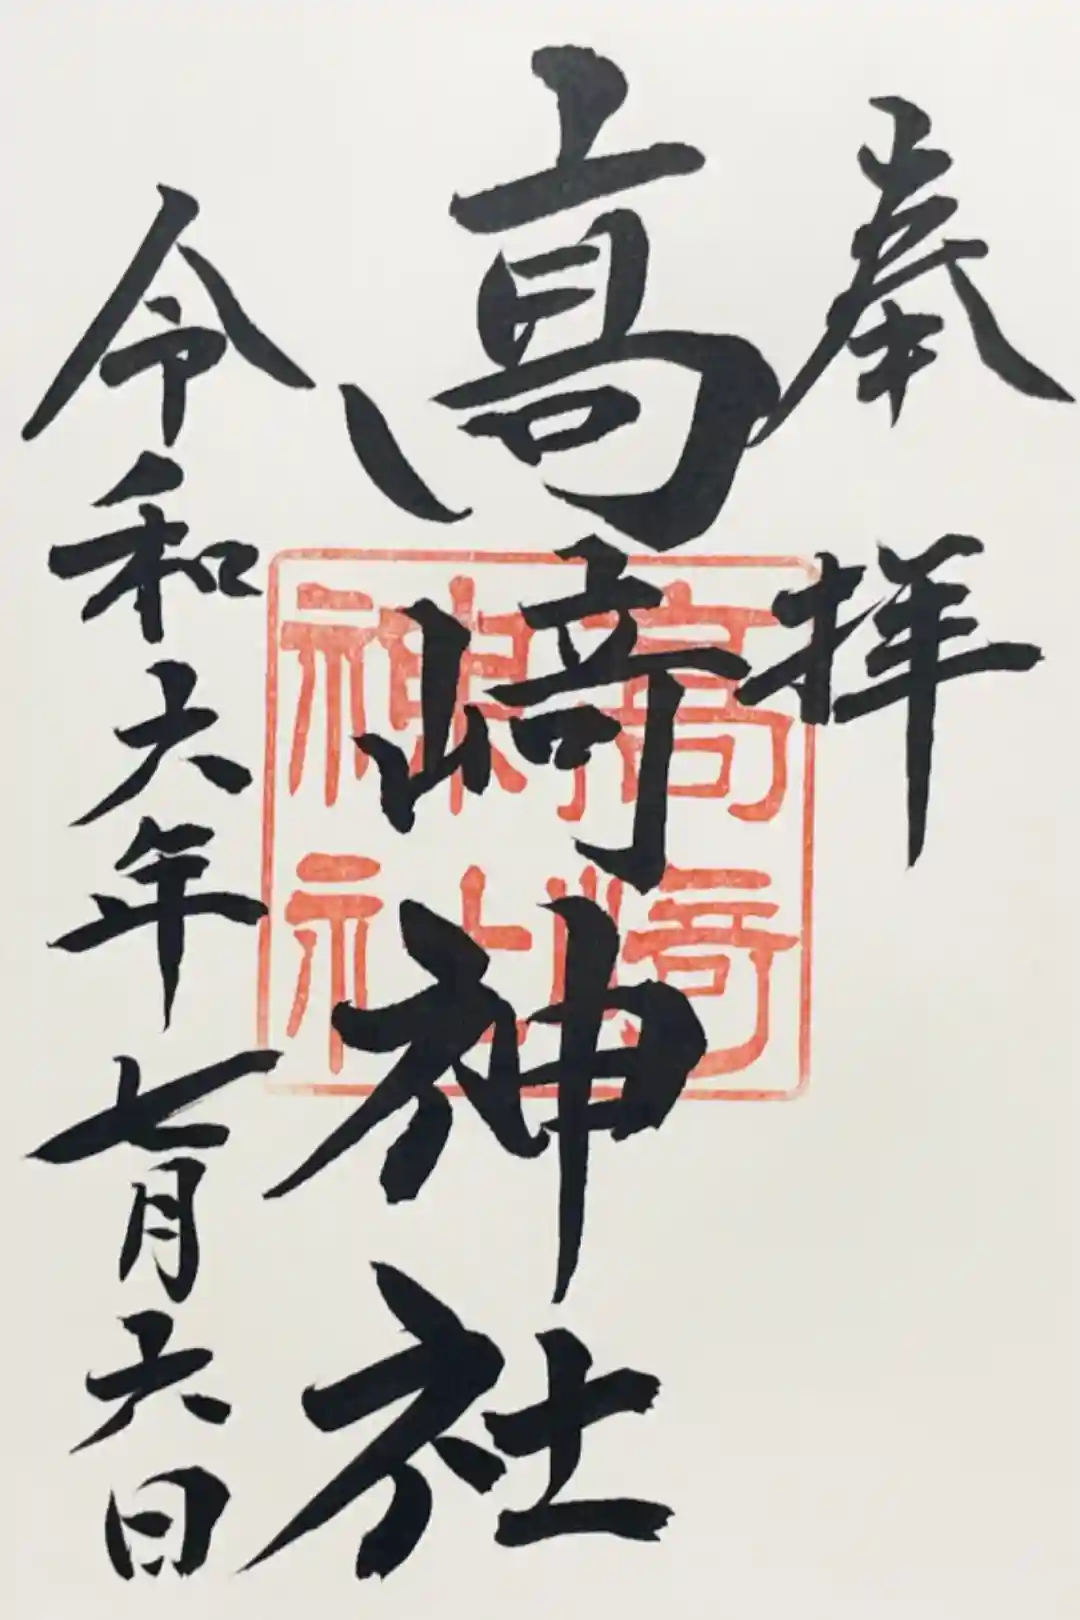 奉拝
髙﨑神社
高﨑
神社
令和六年七月六日